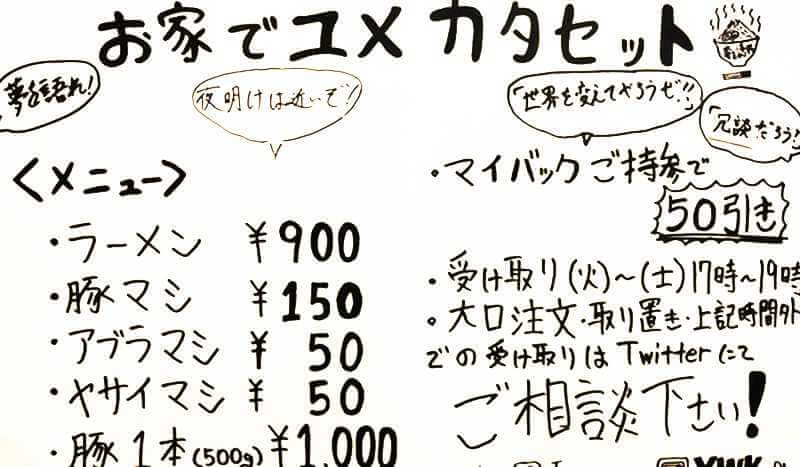 お家でユメカタセット
夢を語れ!
夜明けは近いぞ!
「世界を変えてやろうぜ!!」
「冗談だろう?
<メニュー>
・ラーメン ¥900
・豚マシ ¥150
・アブラマシ ¥50
・ヤサイマシ ¥50
・豚1本(500g) ¥1,000
・マイバックご持参で
50引き
・受け取り(火)~(土)17時~19時
・大口注文・取り置き・上記時間外
での受け取りはTwitterにて
ご相談下さい!